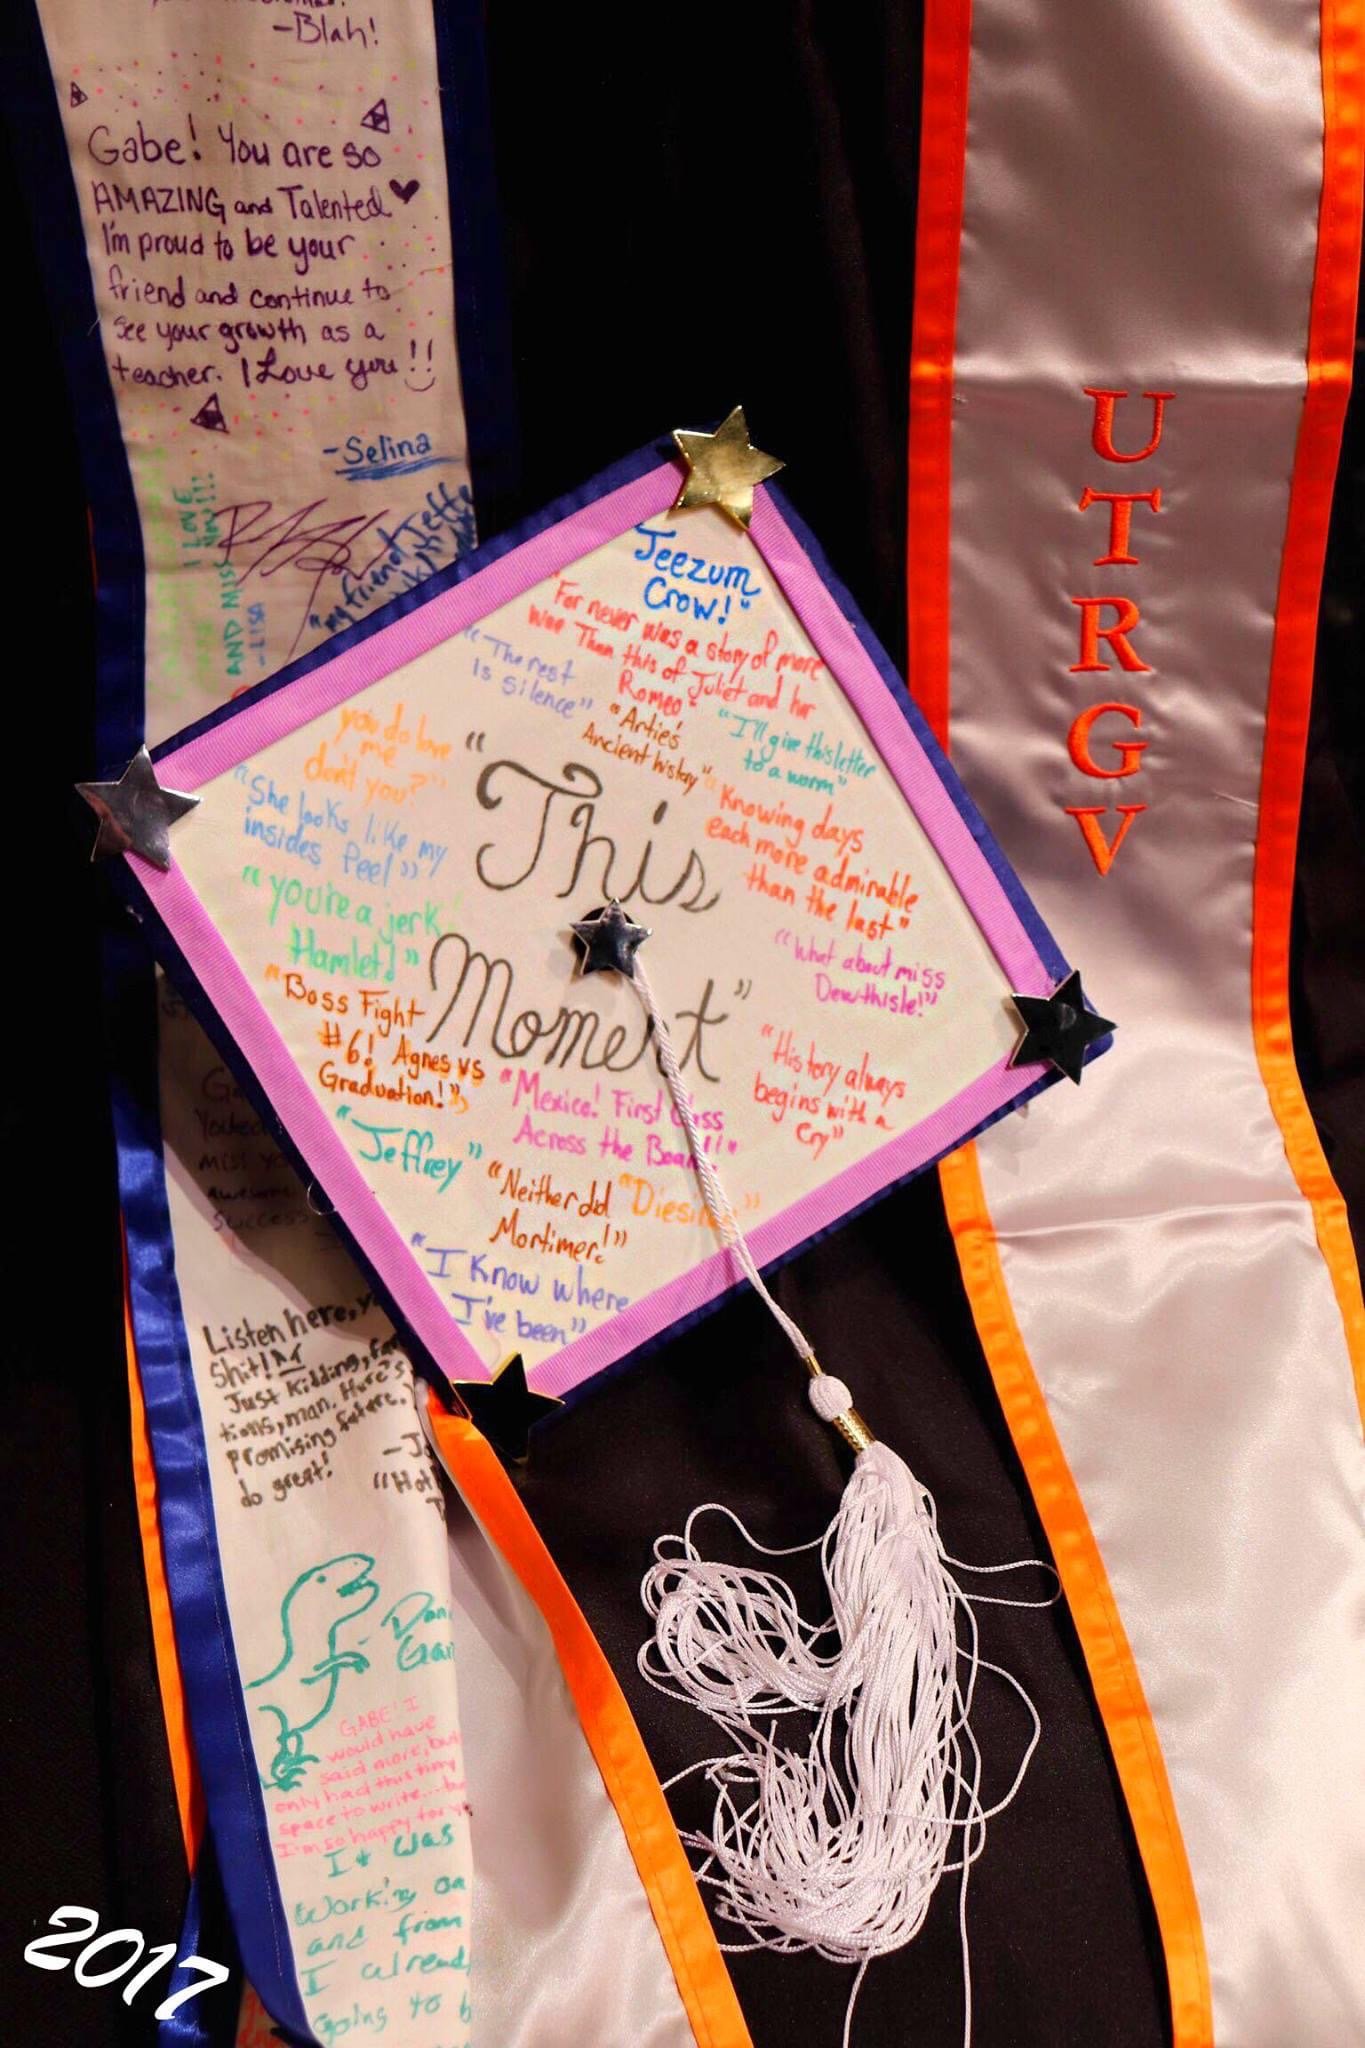 -Blah!
Gabe! You are so
AMAZING and Talented
I'm proud to be your
friend and continue to
see your growth as a
teacher. I Love you!!
-Selina
I LOVE
YOU!!!
AND MISS
-LISA
"my friend Jeff
UTRGV
Jeezum
Crow!"
"For never was a story of more
woe Than this of Juliet and her
Romeo"
"The rest
is silence"
"Artie's
Ancient history"
"I'll give this letter
to a worm"
you do love
me
don't you?"
"She looks like my
insides feel"
"you're a jerk
Hamlet!"
"This
Moment"
"Knowing days
each more admirable
than the last"
"What about miss
Dewthisle!"
"History always
begins with a
cry"
"Boss Fight
#6! Agnes vs
Graduation!"
"Mexico! First Class
Across the Board!!"
"Jeffrey"
"Neither did
Mortimer!"
"I know where
I've been"
miss yo
Awesome
Success
Listen here, y
Shit! JK
Just kidding,
tions, man. Here's
promising future.
do great!
"Hot
GABE! I
would have
said more, but
only had this tiny
space to write...
I'm so happy for
It was
Working on
and from
I alread
going to b
2017